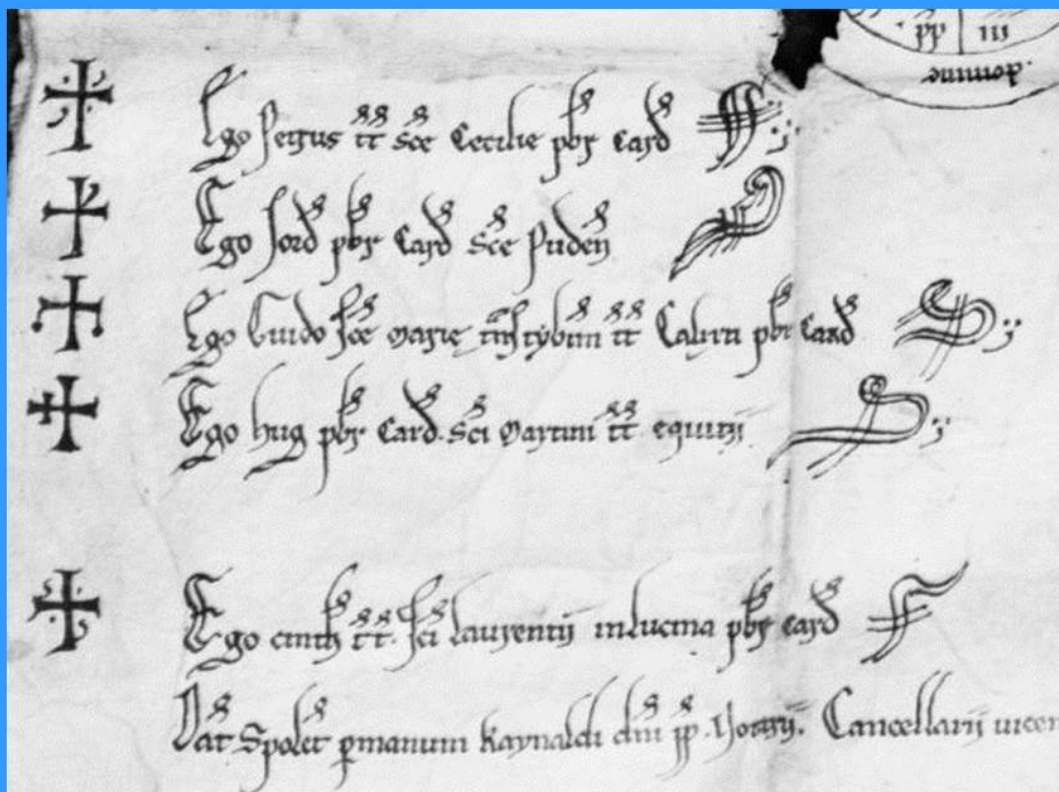 pp III
domine
Ego Petrus tt sce Cecilie pbr card
Ego Iord pbr card sce Puden
Ego Guido sce Marie tnstybim tt Calixti pbr card
Ego hug pbr card. sci Martini tt equitij
Ego cinth tt. sci laurentij inlucina pbr card
Dat Spolet p manum Raynaldi dni pp. Notarij. Cancellarij uicem